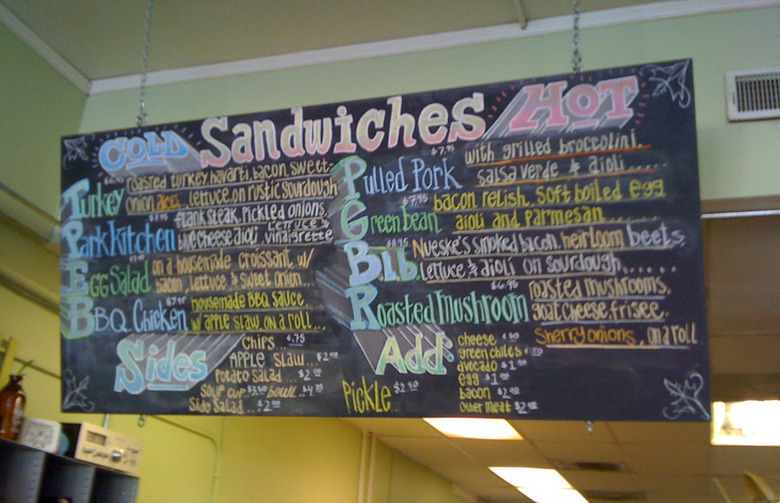 COLD Sandwiches HOT
Turkey $6.95 roasted turkey, havarti, bacon, sweet
onion aioli, lettuce, on rustic sourdough
Park Kitchen $7.95 flank steak, pickled onions,
blue cheese aioli, lettuce & vinaigrette
Egg Salad on a housemade croissant w/
bacon, lettuce & sweet onion...
BBQ Chicken housemade BBQ sauce
w/ apple slaw, on a roll...
Sides
CHIPS $.75
APPLE Slaw... $2.00
Potato Salad... $2.00
Soup cup $3.50 bowl $4.75
Side Salad... $2.00
Pulled Pork $7.75 with grilled broccolini,
salsa verde & aioli.....
Green bean $7.95 bacon relish, soft boiled egg
aioli and parmesan........
Blb $8.95 Nueske's smoked bacon, heirloom beets,
lettuce & aioli on sourdough.......
Roasted Mushroom $6.95 roasted mushrooms,
goat cheese, frisee,
sherry onions, on a roll
Add
cheese
green chiles
avocado $1.00
egg $1.00
bacon $2.00
other meat $2.00
Pickle $2.50